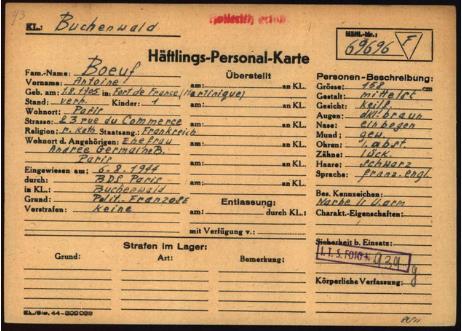 93
KL.: Buchenwald
Häftl.-Nr.:
69696 F
Häftlings-Personal-Karte
Fam.-Name: Boeuf
Vorname: Antoine
Geb. am: 1.8.1905 in Fort de France (Martinique)
Stand: verh. Kinder: 1
Wohnort: Paris
Strasse: 23 rue du Commerce
Religion: r. kath. Staatsang.: Frankreich
Wohnort d. Angehörigen: Ehefrau
Andrée Germaine B.
Paris
Eingewiesen am:
durch: BDS Paris
in KL.: Buchenwald
Grund: Polit. Franzose
Vorstrafen: Keine
Überstellt
am: an KL.
am: an KL.
am: an KL.
am: an KL.
am: an KL.
am: an KL.
Entlassung:
am: durch KL.
mit Verfügung v.:
Personen-Beschreibung:
Grösse: 158 cm
Gestalt: mittelst
Gesicht:
Augen: dkl. braun
Nase: eingebogen
Mund: gew.
Ohren: l. abst
Zähne: lück.
Haare: schwarz
Sprache: franz. engl.
Bes. Kennzeichen:
Narbe
Charakt.-Eigenschaften:
Sicherheit b. Einsatz:
I.T.S. FOTO
Körperliche Verfassung:
Strafen im Lager:
Grund: Art: Bemerkung: